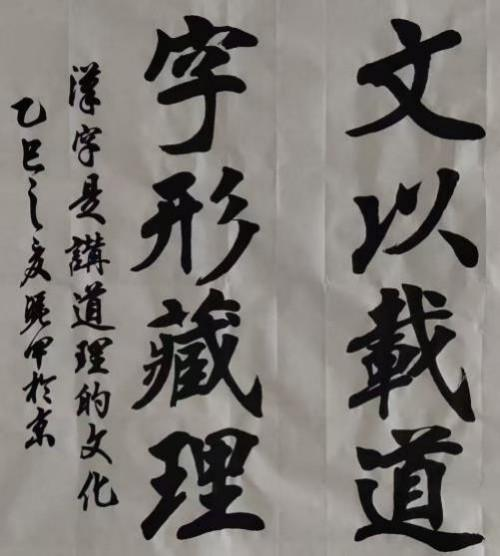 文以載道
字形藏理
漢字是講道理的文化
乙巳之夏曉甲於京